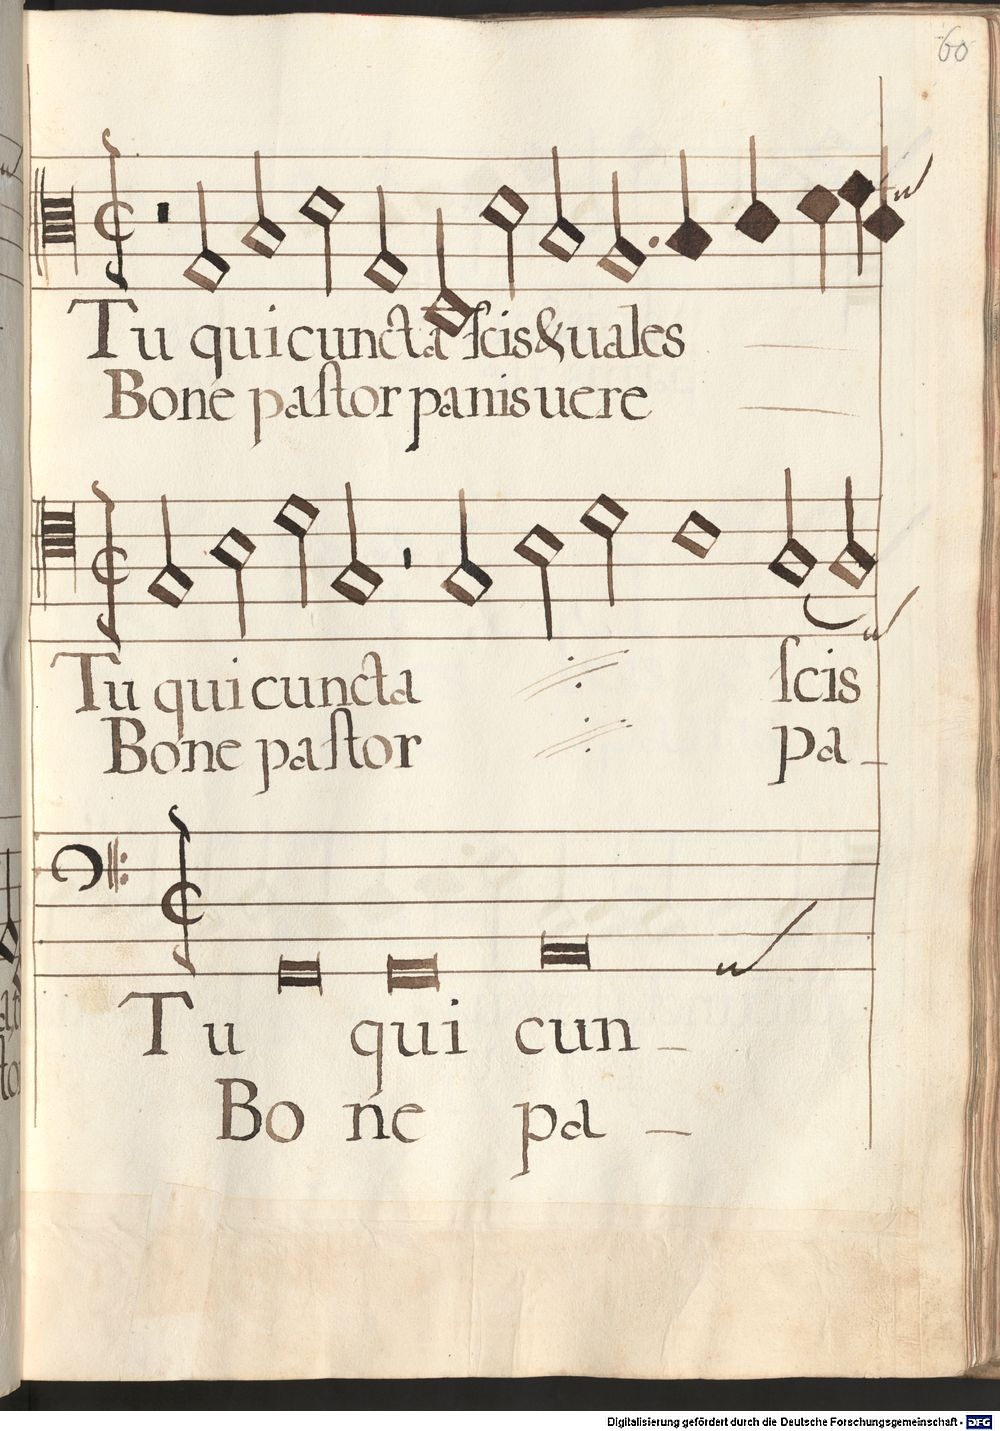 60
Tu qui cuncta scis & uales
Bone pastor panis uere
Tu qui cuncta scis
Bone pastor pa_
Tu qui cun_
Bo ne pa_
Digitalisierung gefördert durch die Deutsche Forschungsgemeinschaft - DFG